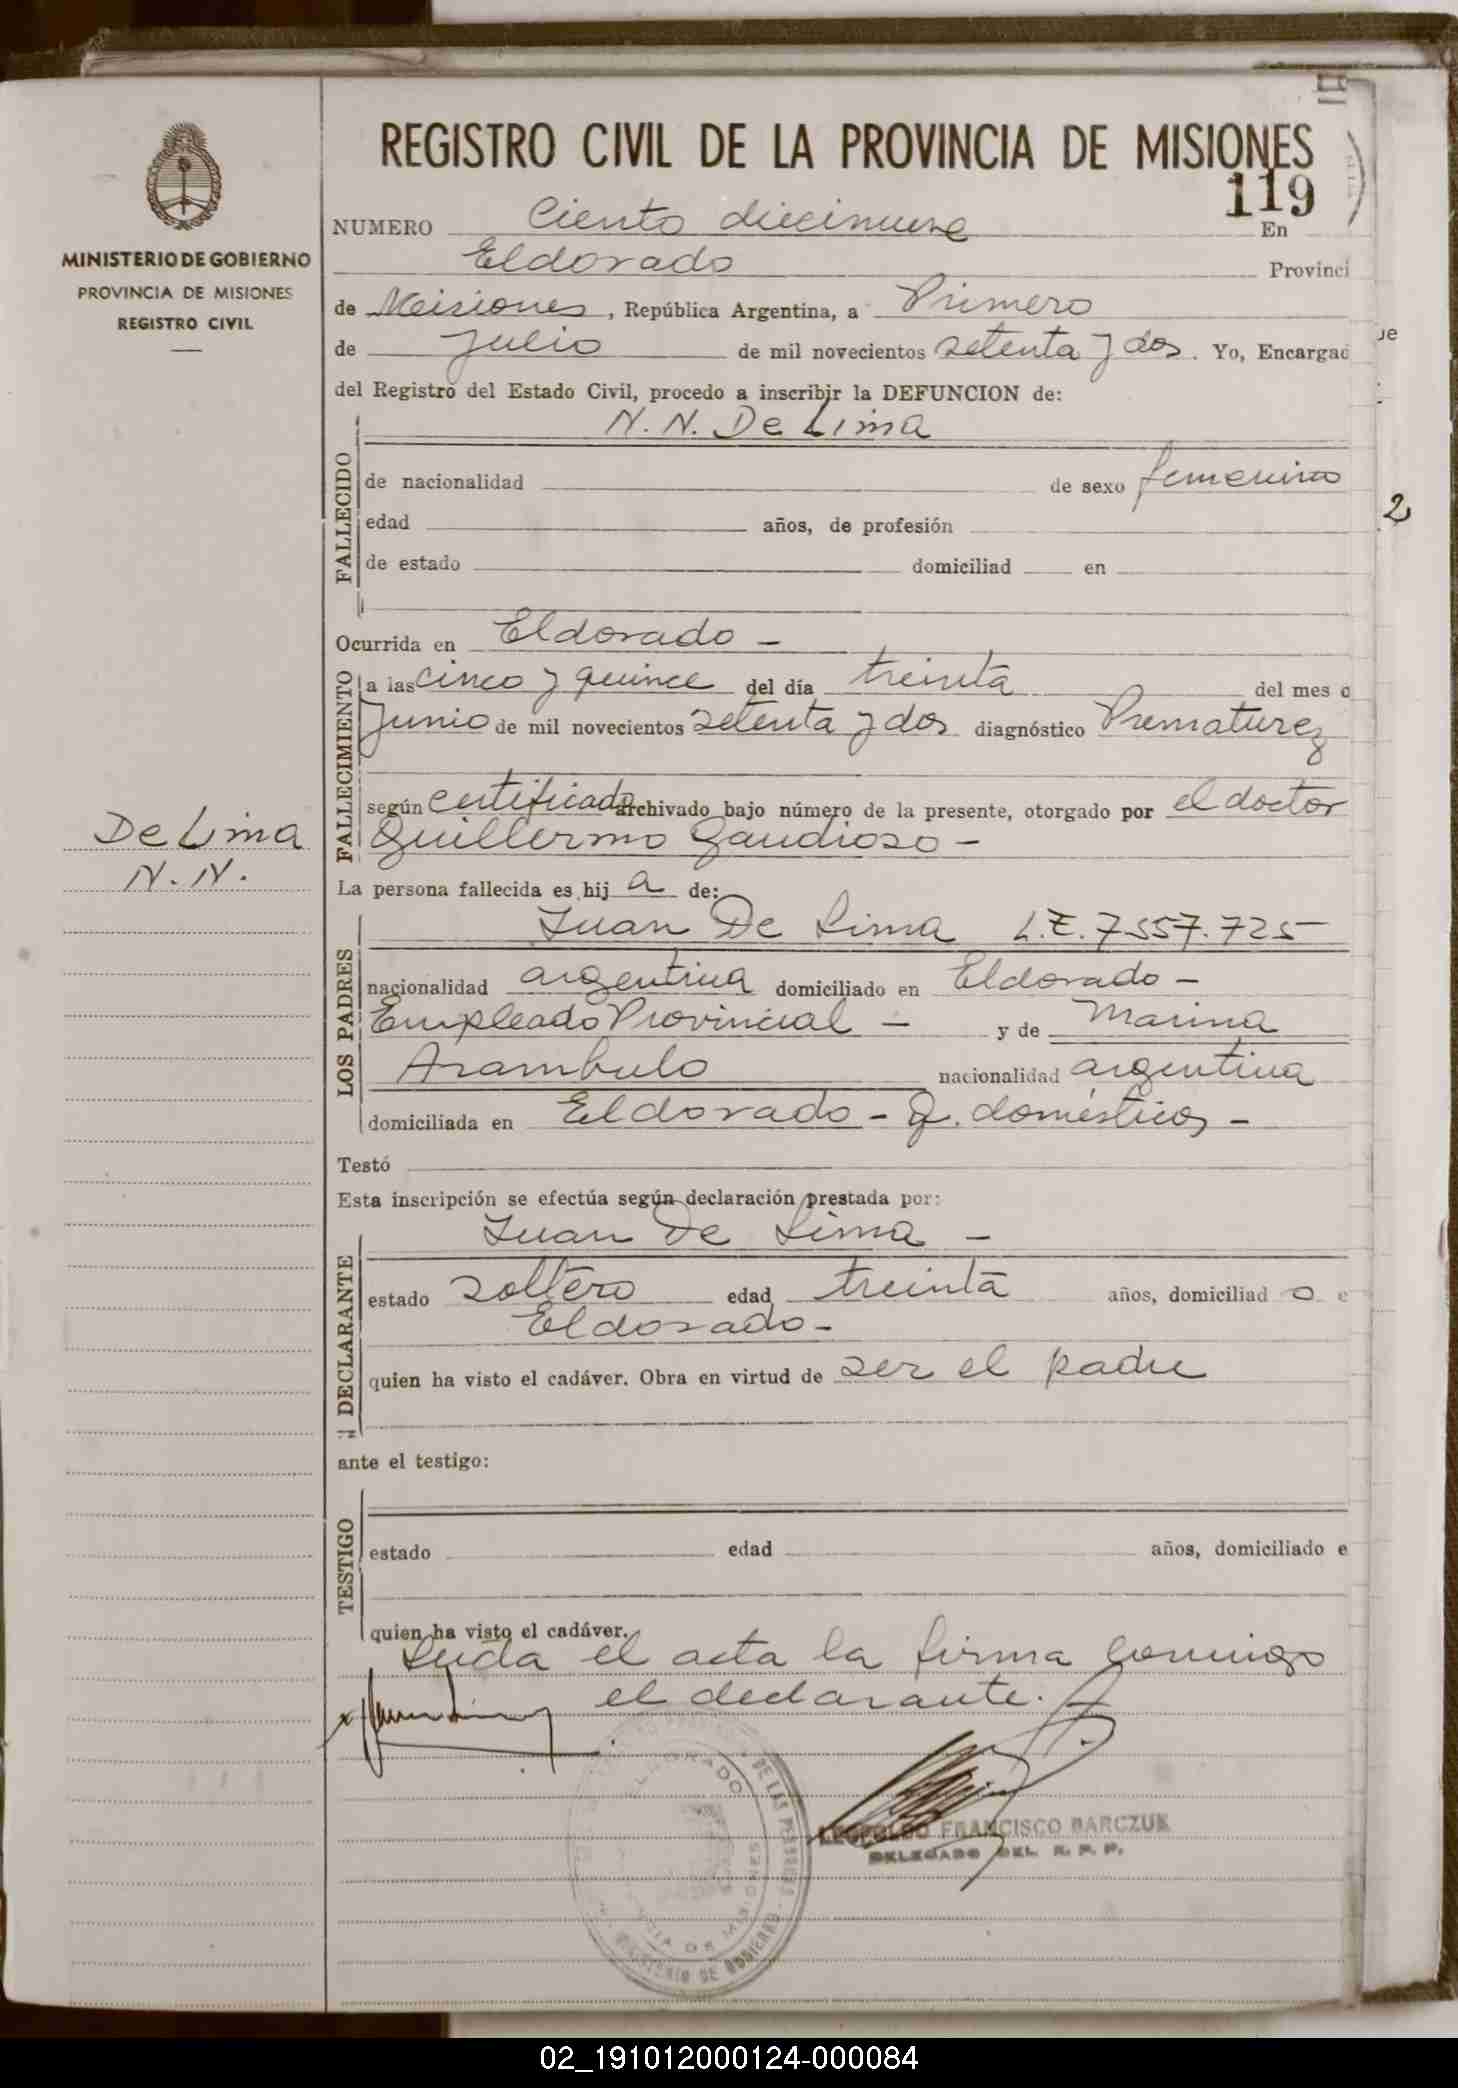 REGISTRO CIVIL DE LA PROVINCIA DE MISIONES
119
MINISTERIO DE GOBIERNO
PROVINCIA DE MISIONES
REGISTRO CIVIL
NUMERO Ciento diecinueve En
Eldorado Provinci
de Misiones, República Argentina, a Primero
de Julio de mil novecientos setenta y dos. Yo, Encargad
del Registro del Estado Civil, procedo a inscribir la DEFUNCION de:
N. N. De Lima
FALLECIDO
de nacionalidad de sexo femenino
edad años, de profesión
de estado domiciliad en
Ocurrida en Eldorado -
FALLECIMIENTO
a las cinco y quince del día treinta del mes d
Junio de mil novecientos setenta y dos diagnóstico Prematurez
según certificado archivado bajo número de la presente, otorgado por el doctor
Guillermo Gaudioso -
De Lima
N. N.
La persona fallecida es hij a de:
LOS PADRES
Juan De Lima L.E. 7557.725-
nacionalidad argentina domiciliado en Eldorado -
Empleado Provincial - y de Marina
Arambulo nacionalidad argentina
domiciliada en Eldorado - Q. domésticos -
Testó
Esta inscripción se efectúa según declaración prestada por:
DECLARANTE
Juan De Lima -
estado soltero edad treinta años, domiciliad o e
Eldorado -
quien ha visto el cadáver. Obra en virtud de ser el padre
ante el testigo:
TESTIGO
estado edad años, domiciliado e
quien ha visto el cadáver.
Leida el acta la firma conmigo
el declarante.
ELDORADO
DE LAS PERSONAS
MINISTERIO DE GOBIERNO
CIA DE MISIONES
LEOPOLDO FRANCISCO BARCZUK
DELEGADO DEL R. P. P.
ue
2
02_191012000124-000084